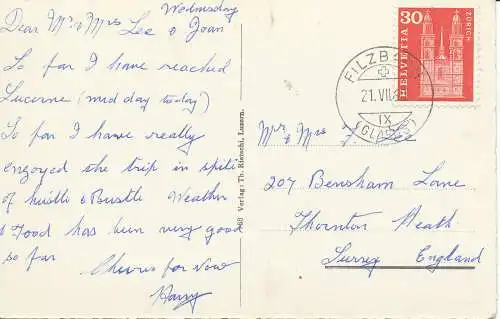 Wednesday
Dear Mr & Mrs Lee & Joan
So far I have reached
Lucerne (mid day today)
So far I have really
engoyed the trip in spite
of hustle & Bustle Weather
& Food has been very good
so far
Cheerio for Now
Harry
460 Verlag: Th. Rietschi, Luzern.
30
HELVETIA
ZÜRICH
FILZB
21.VII.6
IX
(GLARUS)
Mr & Mrs
207 Bensham Lane
Thornton Heath
Surrey England